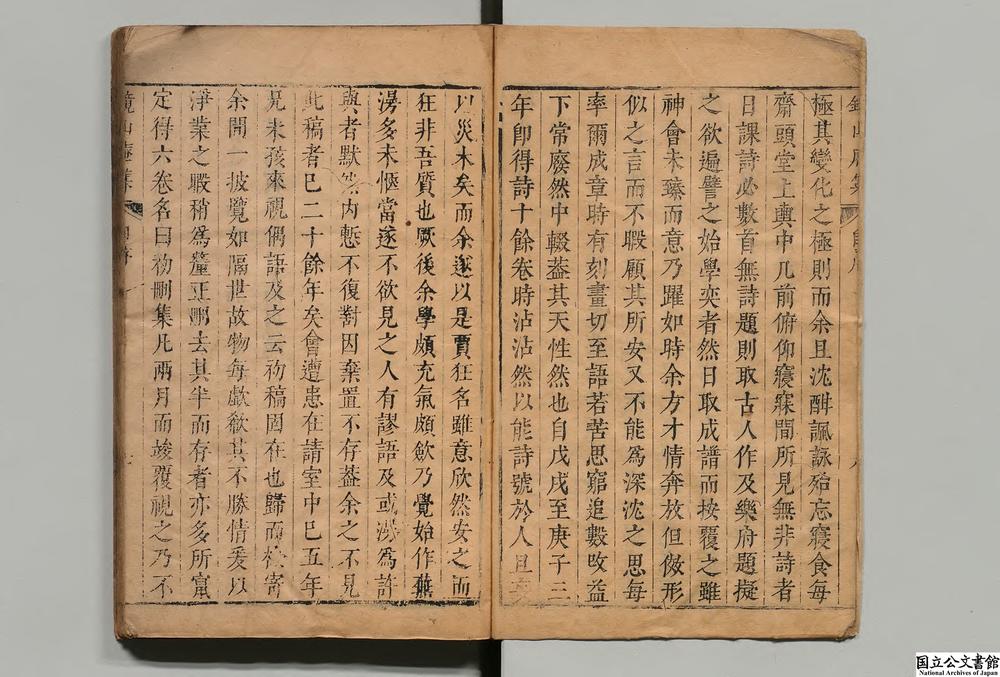 極其變化之極則而余且沈酣諷詠殆忘寢食每
齋頭堂上輿中几前俯仰寢寐間所見無非詩者
日課詩必數首無詩題則取古人作及樂府題擬
之欲遍譬之始學奕者然日取成譜而按覆之雖
神會未臻而意乃躍如時余方才情奔放但儌形
似之言而不暇顧其所安又不能為深沈之思每
率爾成章時有刻畫切至語若苦思窮追數改益
下常廢然中輟葢其天性然也自戊戌至庚子三
年卽得詩十餘卷時沾沾然以能詩號於人且
以災木矣而余遂以是賈狂名雖意欣然安之而
狂非吾質也厥後余學頗充氣頗歛乃覺始作蕪
漫多未愜當遂不欲見之人有謬語及或濫為許
與者默然內慙不復對因棄置不存葢余之不見
此稿者已二十餘年矣會遭患在請室中已五年
兄未孩來視偶語及之云初稿固在也歸而檢寄
余開一披覽如隔世故物每歔欷其不勝情爰以
淨業之暇稍為釐正刪去其半而存者亦多所竄
定得六卷名曰初刪集凡兩月而竣覆視之乃不
鏡山庵集
国立公文書館
National Archives of Japan